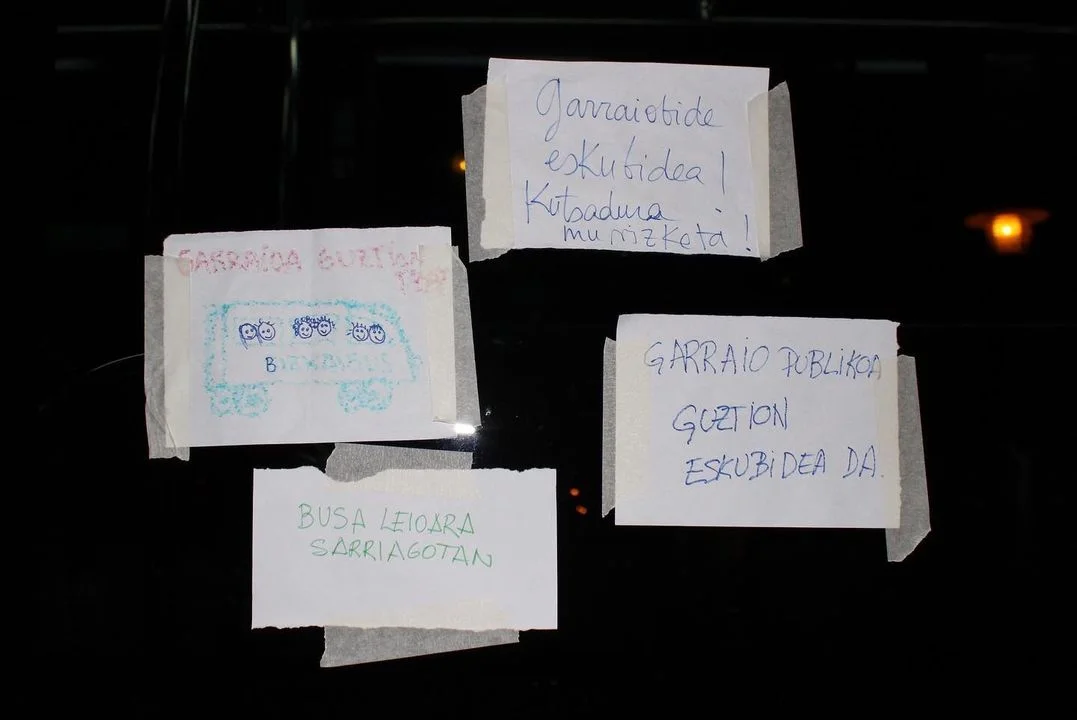 Garraiobide
eskubidea!
Kutsadura
murrizketa!
GARRAIOA GUZTION
TZAT
BIZKAIBUS
GARRAIO PUBLIKOA
GUZTION
ESKUBIDEA DA.
BUSA LEIOARA
SARRIAGOTAN